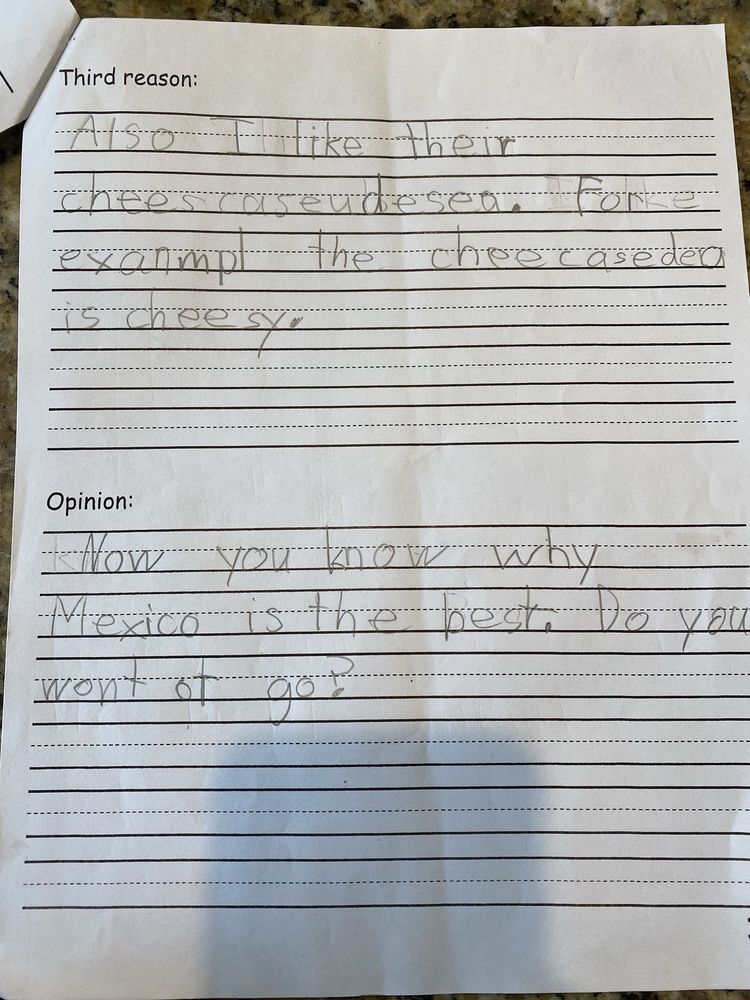 Third reason:
Also I like their
cheescaseudesea. Forke
exanmpl the cheecasedea
is cheesy.
Opinion:
Now you know why
Mexico is the best. Do you
wont ot go?